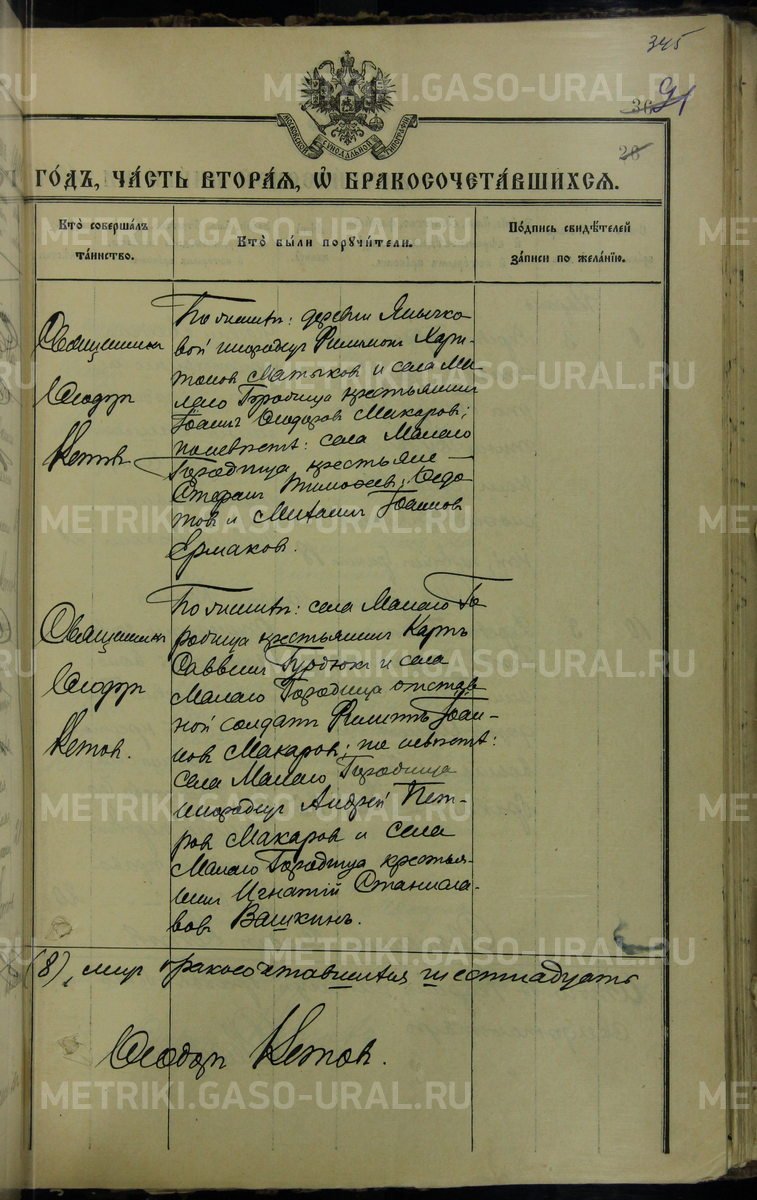 345
36
91
28
МОСКОВСКОЙ СѴНОДАЛЬНОЙ ТИПОГРАФІИ
ГО́ДЪ, ЧА́СТЬ ВТОРА́Я, Ѡ҆ БРАКОСОЧЕТА́ВШИХСЯ.
Кто̀ соверша́лъ
та́инство.
Кто̀ бы́ли порꙋчи́тели.
По́дпись свидѣ́телей
за́писи по жела́нїю.
По женихѣ: деревни Янычко-
вой инородецъ Филимонъ Хари-
тоновъ Матыков и села Ма-
лаго Городища крестьянинъ
Іоаннъ Ѳеодоровъ Макаровъ;
по невѣстѣ: села Малаго
Городища крестьяне
Стефанъ Тимофеев; Ѳедо-
товъ и Михаилъ Іоаннов
Ермаковъ.
Священникъ
Ѳеодоръ
Кетовъ
По женихѣ: села Малаго Го-
родища крестьянинъ Карпъ
Саввинъ и села
Малаго Городища отстав-
ной солдатъ Филиппъ Іоан-
новъ Макаров; по невѣстѣ:
села Малаго Городища
инородецъ Андрей Пет-
ровъ Макаровъ и села
Малаго Городища крестья-
нинъ Игнатій Станисла-
вовъ Вашкинъ.
Священникъ
Ѳеодоръ
Кетовъ.
(8), бракосочетавшихся шестнадцать
Ѳеодоръ Кетовъ.
METRIKI.GASO-URAL.RU